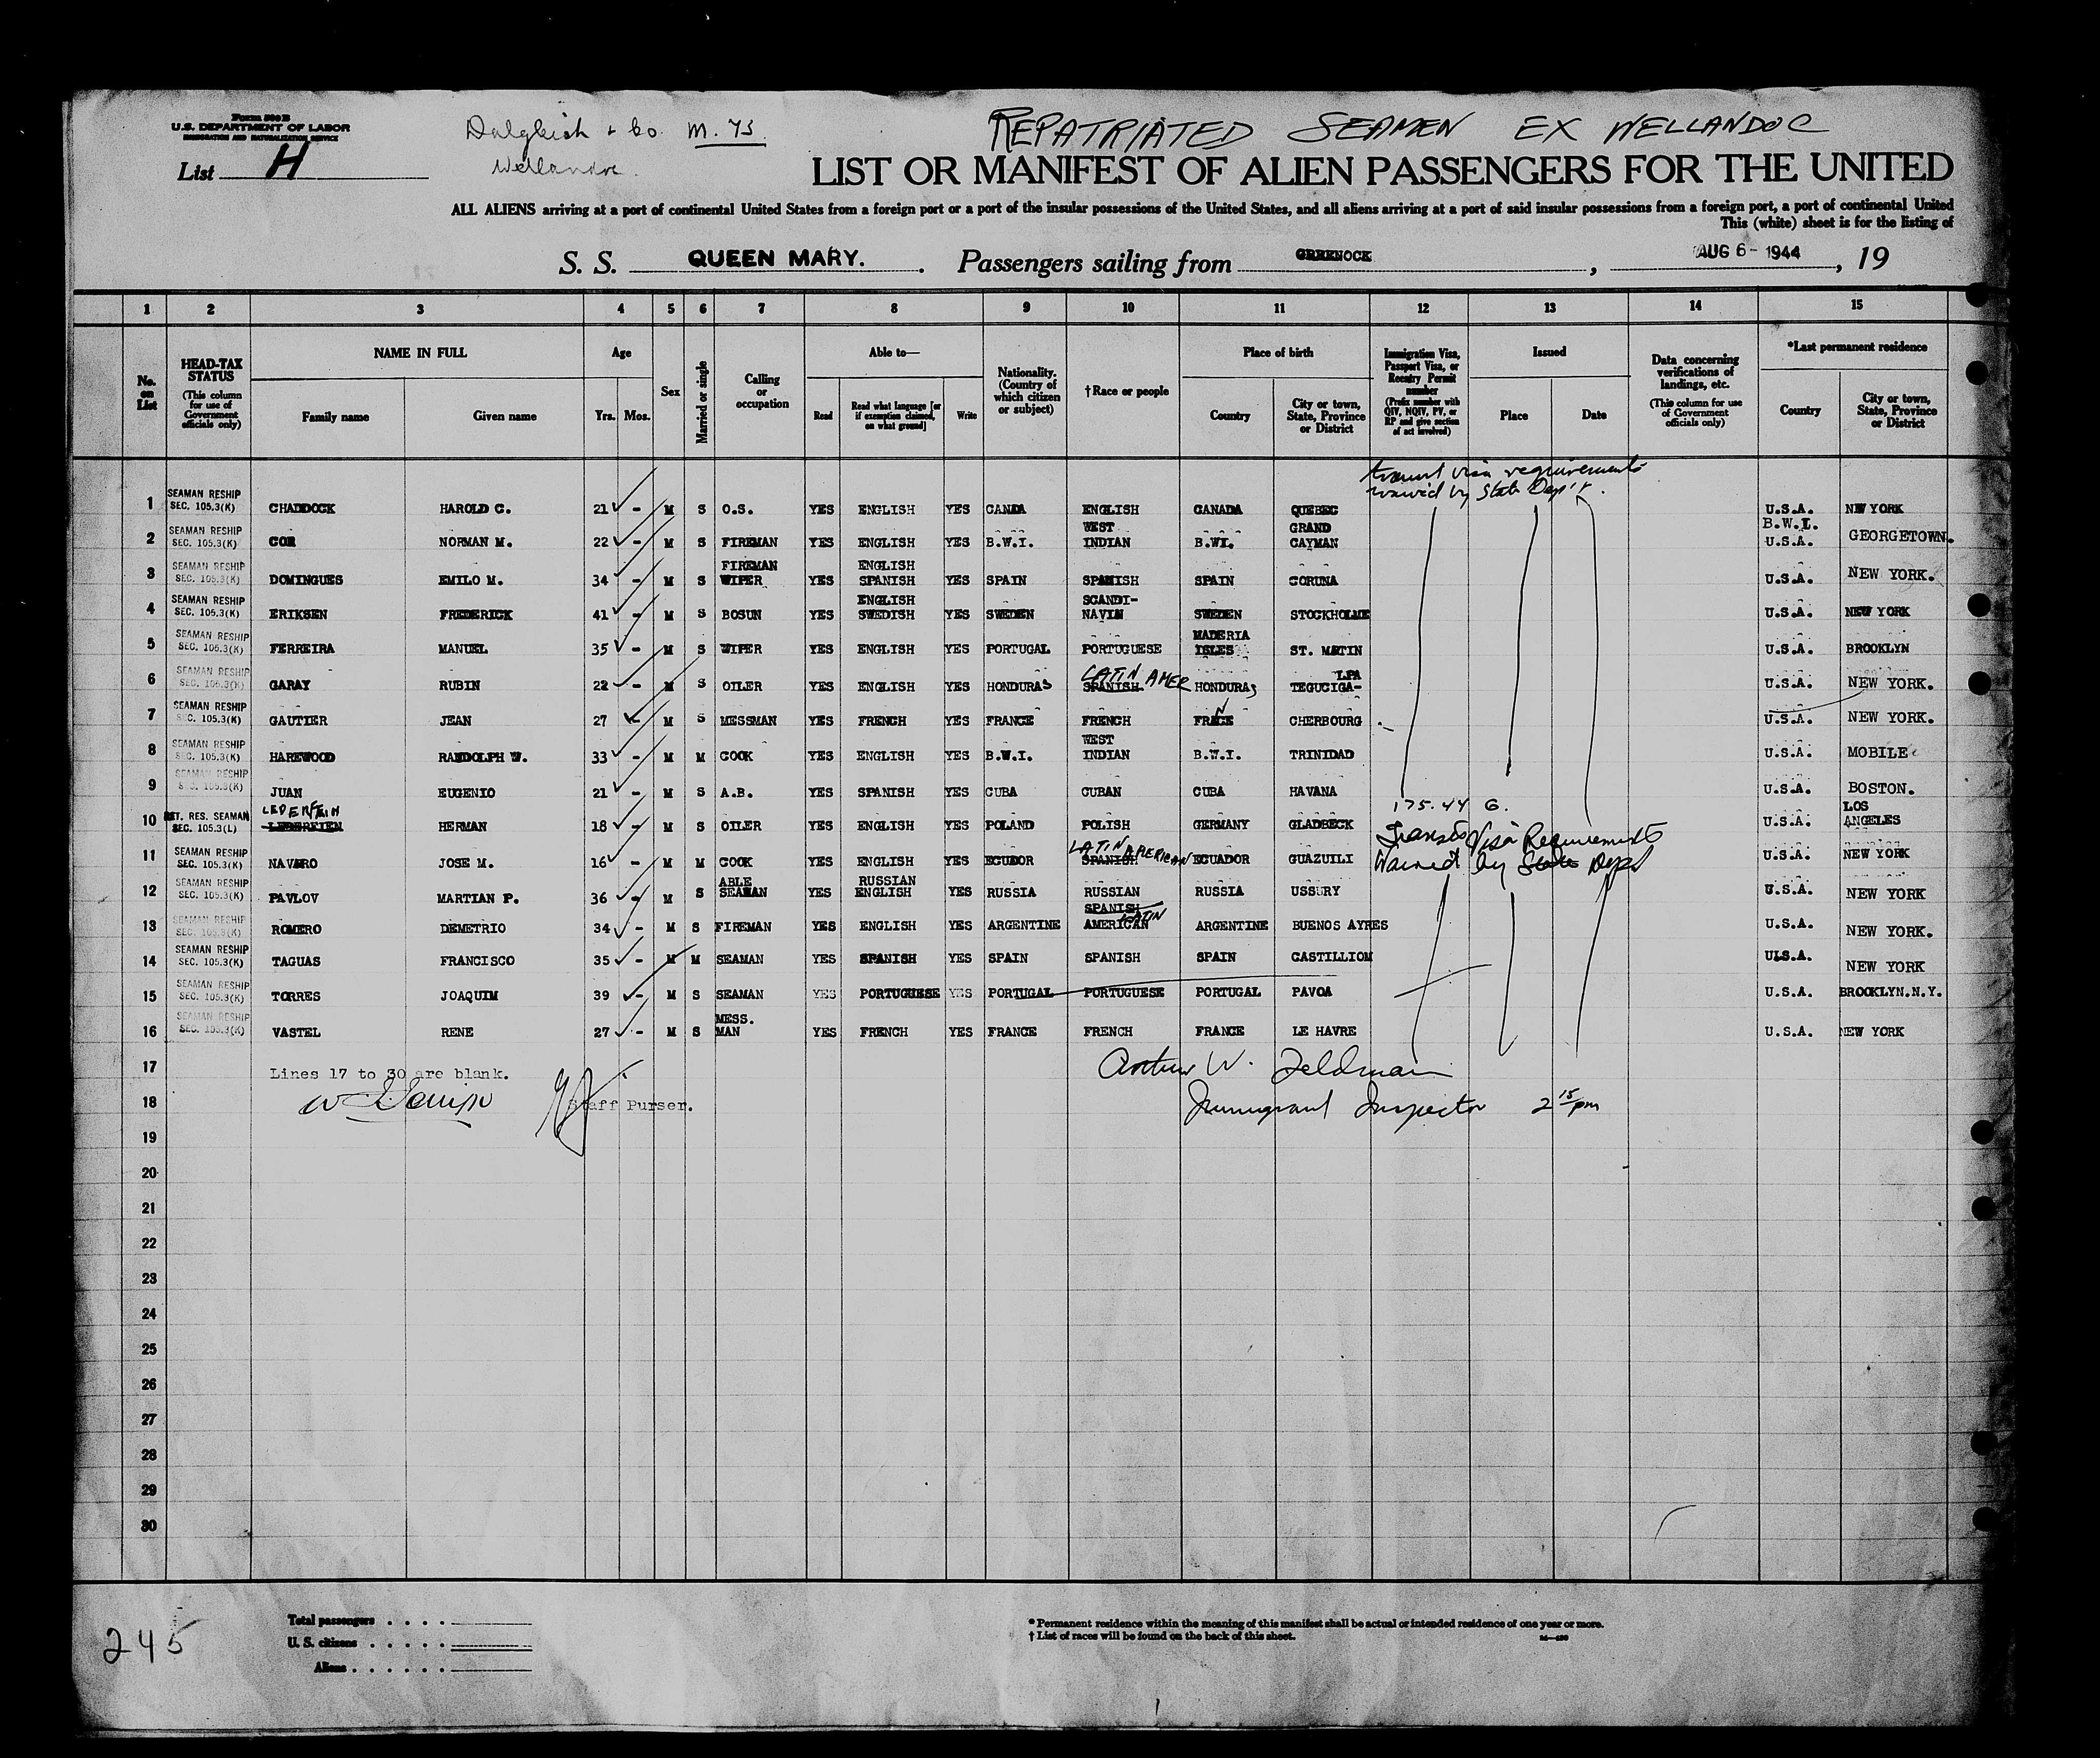 Form 500 B
U.S. DEPARTMENT OF LABOR
IMMIGRATION AND NATURALIZATION SERVICE
List H
Dalgleish & Co. M. 73
REPATRIATED SEAMEN EX WELLANDOC
LIST OR MANIFEST OF ALIEN PASSENGERS FOR THE UNITED
ALL ALIENS arriving at a port of continental United States from a foreign port or a port of the insular possessions of the United States, and all aliens arriving at a port of said insular possessions from a foreign port, a port of continental United
This (white) sheet is for the listing of
S. S. QUEEN MARY. Passengers sailing from GREENOCK, AUG 6 - 1944, 19
1 2 3 4 5 6 7 8 9 10 11 12 13 14 15
No. on List
HEAD-TAX STATUS (This column for use of Government officials only)
NAME IN FULL Family name Given name
Age Yrs. Mos.
Sex
Married or single
Calling or occupation
Able to— Read Read what language [or if exemption claimed, on what ground] Write
Nationality. (Country of which citizen or subject)
†Race or people
Place of birth Country City or town, State, Province or District
Immigration Visa, Passport Visa, or Reentry Permit number (Prefix number with QIV, NQIV, PV, or RP and give section of act involved)
Issued Place Date
Data concerning verifications of landings, etc. (This column for use of Government officials only)
*Last permanent residence Country City or town, State, Province or District
Transit visa requirements
waived by State Dep't.
1 SEAMAN RESHIP SEC. 105.3(K) CHADDOCK HAROLD C. 21 - M S O.S. YES ENGLISH YES CANDA ENGLISH CANADA QUEBEC U.S.A. NEW YORK
2 SEAMAN RESHIP SEC. 105.3(K) COR NORMAN M. 22 - M S FIREMAN YES ENGLISH YES B.W.I. WEST INDIAN B.WI. GRAND CAYMAN B.W.I. U.S.A. GEORGETOWN.
3 SEAMAN RESHIP SEC. 105.3(K) DOMINGUES EMILO M. 34 - M S FIREMAN WIPER YES ENGLISH SPANISH YES SPAIN SPANISH SPAIN CORUNA U.S.A. NEW YORK.
4 SEAMAN RESHIP SEC. 105.3(K) ERIKSEN FREDERICK 41 - M S BOSUN YES ENGLISH SWEDISH YES SWEDEN SCANDI-NAVIN SWEDEN STOCKHOLME U.S.A. NEW YORK
5 SEAMAN RESHIP SEC. 105.3(K) FERREIRA MANUEL 35 - M S WIPER YES ENGLISH YES PORTUGAL PORTUGUESE MADERIA ISLES ST. MATIN U.S.A. BROOKLYN
6 SEAMAN RESHIP SEC. 105.3(K) GARAY RUBIN 22 - M S OILER YES ENGLISH YES HONDURAS SPANISH LATIN AMER HONDURAS TEGUCIGA-LPA U.S.A. NEW YORK.
7 SEAMAN RESHIP SEC. 105.3(K) GAUTIER JEAN 27 - M S MESSMAN YES FRENCH YES FRANCE FRENCH FRANCE CHERBOURG U.S.A. NEW YORK.
8 SEAMAN RESHIP SEC. 105.3(K) HAREWOOD RANDOLPH W. 33 - M M COOK YES ENGLISH YES B.W.I. WEST INDIAN B.W.I. TRINIDAD U.S.A. MOBILE
9 SEAMAN RESHIP SEC. 105.3(K) JUAN EUGENIO 21 - M S A.B. YES SPANISH YES CUBA CUBAN CUBA HAVANA U.S.A. BOSTON.
175.44 G.
10 RET. RES. SEAMAN SEC. 105.3(L) HERMAN 18 - M S OILER YES ENGLISH YES POLAND POLISH GERMANY GLADBECK U.S.A. LOS ANGELES
Transit Visa Requirements
Waived by State Dept
11 SEAMAN RESHIP SEC. 105.3(K) NAVARO JOSE M. 16 - M M COOK YES ENGLISH YES ECUDOR SPANISH LATIN AMERICAN ECUADOR GUAZUILI U.S.A. NEW YORK
12 SEAMAN RESHIP SEC. 105.3(K) PAVLOV MARTIAN P. 36 - M S ABLE SEAMAN YES RUSSIAN ENGLISH YES RUSSIA RUSSIAN RUSSIA USSURY U.S.A. NEW YORK
13 SEAMAN RESHIP SEC. 105.3(K) ROMERO DEMETRIO 34 - M S FIREMAN YES ENGLISH YES ARGENTINE SPANISH LATIN AMERICAN ARGENTINE BUENOS AYRES U.S.A. NEW YORK.
14 SEAMAN RESHIP SEC. 105.3(K) TAGUAS FRANCISCO 35 - M M SEAMAN YES SPANISH YES SPAIN SPANISH SPAIN CASTILLION U.S.A. NEW YORK
15 SEAMAN RESHIP SEC. 105.3(K) TORRES JOAQUIM 39 - M S SEAMAN YES PORTUGUESE YES PORTUGAL PORTUGUESE PORTUGAL PAVOA U.S.A. BROOKLYN.N.Y.
16 SEAMAN RESHIP SEC. 105.3(K) VASTEL RENE 27 - M S MESS. MAN YES FRENCH YES FRANCE FRENCH FRANCE LE HAVRE U.S.A. NEW YORK
17 Lines 17 to 30 are blank. Arthur W. Feldman
18 Staff Purser. Immigrant Inspector 2 15 pm
19
20
21
22
23
24
25
26
27
28
29
30
245
Total passengers
U. S. citizens
Aliens
* Permanent residence within the meaning of this manifest shall be actual or intended residence of one year or more.
† List of races will be found on the back of this sheet.